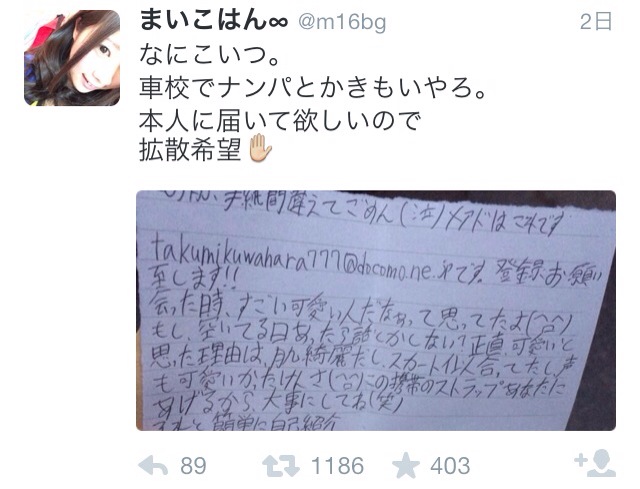 まいこはん∞ @m16bg 2日
なにこいつ。
車校でナンパとかきもいやろ。
本人に届いて欲しいので
拡散希望✋
手紙間違えてごめん(泣)メアドはこれです
takumikuwahara777@docomo.ne.jpです。登録、お願い
致します!!
会った時、すごい可愛い人だなぁって思ってたよ(^○^)
もし、空いてる日あったら話とかしない?正直、可愛いと
思った理由は、肌綺麗だし、スカート似合ってたし、声
も可愛いかったけんさ(^○^)この携帯のストラップあなたに
あげるから、大事にしてね(笑)
それと簡単に自己紹介
89 1186 403